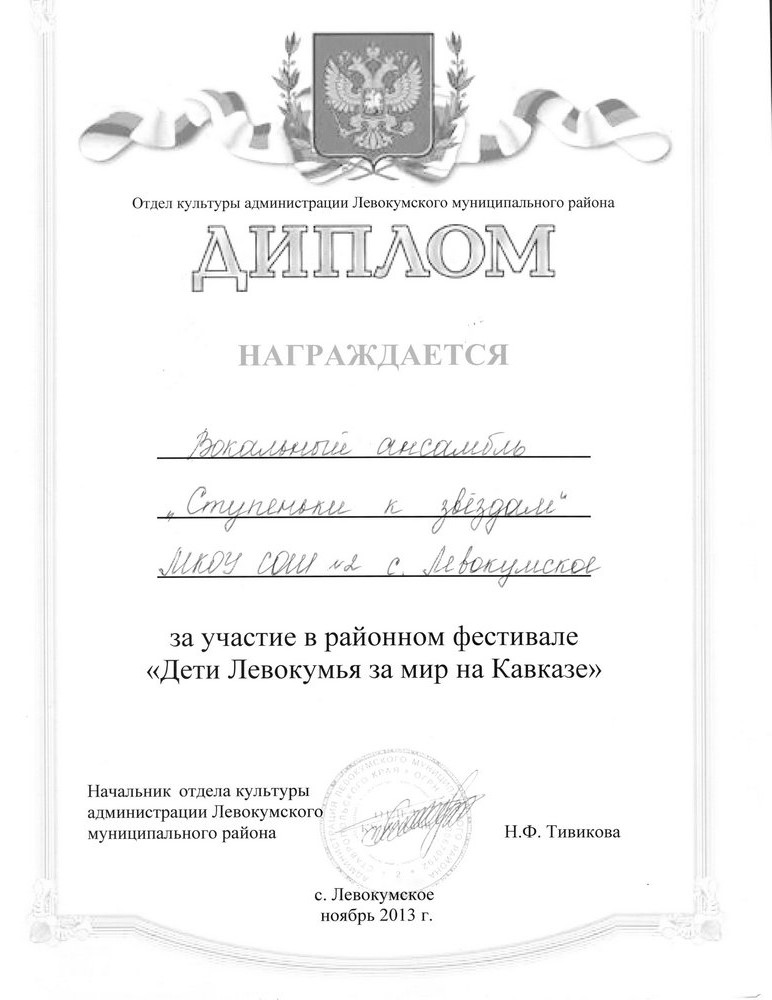 Отдел культуры администрации Левокумского муниципального района
ДИПЛОМ
НАГРАЖДАЕТСЯ
Вокальный ансамбль
„Ступеньки к звёздам“
МКОУ СОШ №2 с. Левокумское
за участие в районном фестивале
«Дети Левокумья за мир на Кавказе»
Начальник отдела культуры
администрации Левокумского
муниципального района
Н.Ф. Тивикова
с. Левокумское
ноябрь 2013 г.